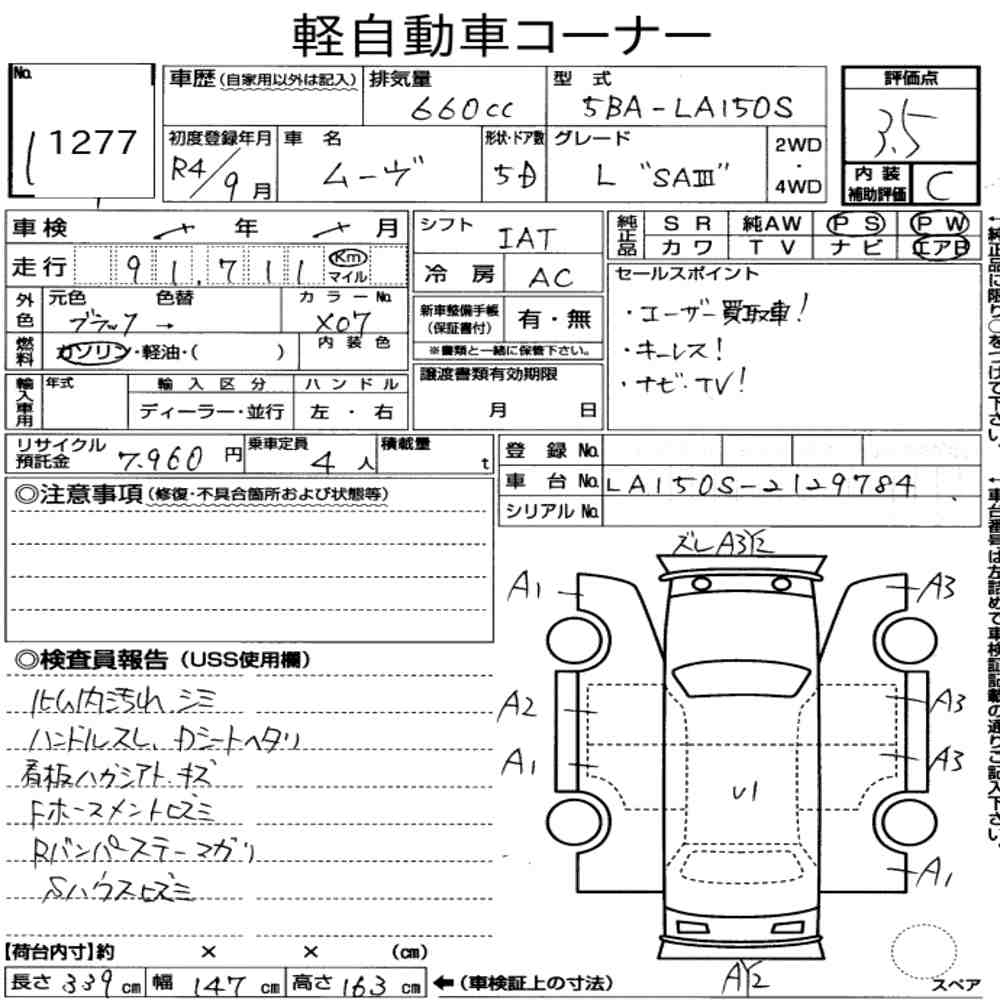 軽自動車コーナー
No. 1 1277
車歴(自家用以外は記入) 排気量 660cc 型式 5BA-LA150S
初度登録年月 R4/9月 車名 ムーヴ 形状・ドア数 5D グレード L "SAⅢ" 2WD・4WD
評価点 3.5
内装補助評価 C
車検 年 月
走行 91,711 Km マイル
外色 元色 ブラック → 色替 カラーNo. X07
燃料 ガソリン・軽油・( ) 内装色
輸入車用 年式 輸入区分 ディーラー・並行 ハンドル 左・右
シフト IAT
冷房 AC
新車整備手帳(保証書付) 有・無
※書類と一緒に保管下さい。
譲渡書類有効期限 月 日
純正品 SR 純AW PS PW
カワ TV ナビ エアB
セールスポイント
・ユーザー買取車!
・キーレス!
・ナビ・TV!
リサイクル預託金 7,960円 乗車定員 4人 積載量 t
登録No.
車台No. LA150S-2129784
シリアルNo.
◎注意事項(修復・不具合箇所および状態等)
◎検査員報告(USS使用欄)
内汚れ シミ
ハンドルスレ、Dシートヘタリ
看板ハガシアト、キズ
Fホースメントヒズミ
Rバンパーステーマガリ
Sハウスヒズミ
ズレA3Y2
A1 A3
A2 A3
A1 A3
U1
A1
AY2
スペア
【荷台内寸】約 × × (cm)
長さ 339cm 幅 147cm 高さ 163cm ←(車検証上の寸法)
←純正品に限り○をつけて下さい。
←車台番号は左詰めで車検証記載の通りご記入下さい。